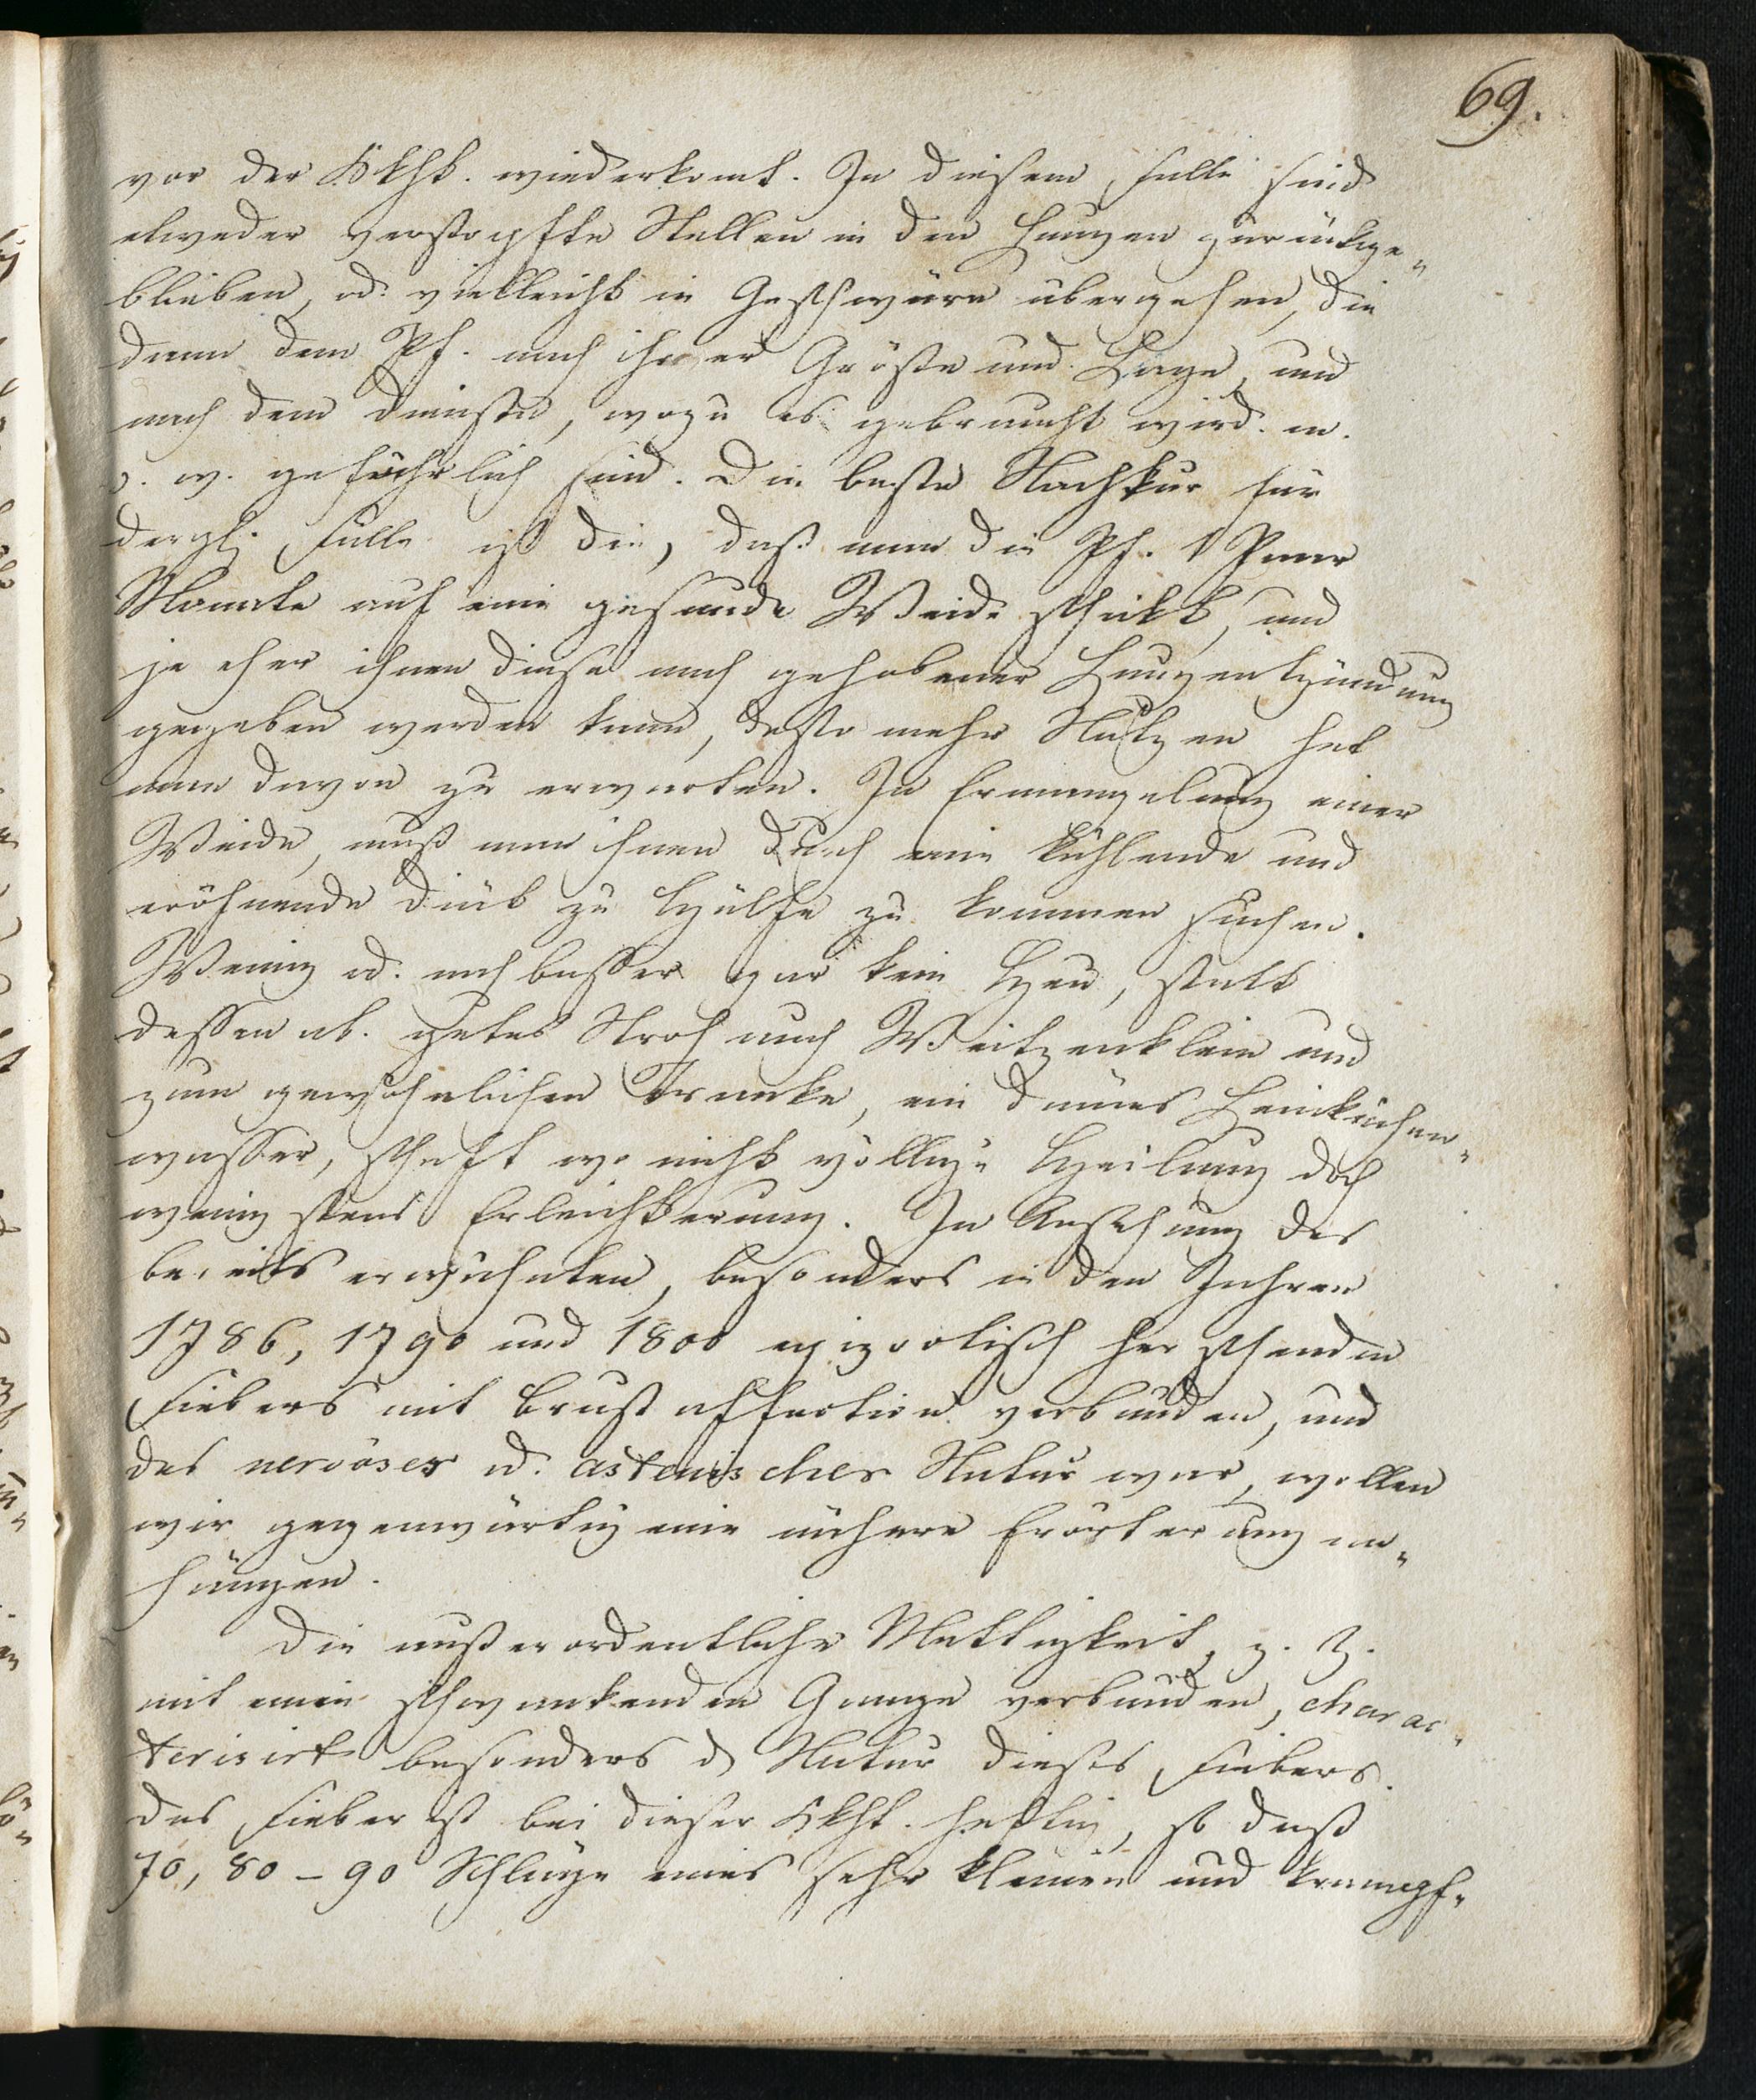 69.
vor der Kkht. wiederkomt. In diesem Falle sind
etweder verstopfte Stellen in den Lungen zurückge„
blieben, od. vielleicht in Geschwüre übergehen, die
dann dem Pf. nach ihrer Größe und Lage, und
nach dem Dienste, wozu es gebraucht wird. m.
o. w. gefährlich sind. Die beste Nachkur für
dergl. Fälle ist die, daß man die Pf. 1 Paar
Monate auf eine gesunde Weide schikt, und
je eher ihnen diese nach gehobener Lungenentzündung
gegeben werden kann, desto mehr Nutzen hat
man davon zu erwarten. In Ermangelung einer
Weide, muß man ihnen durch eine kühlende und
eröfnende Diät zu Hülfe zu kommen suchen.
Wenig od. noch besser gar kein Heu, statt
dessen ab. gutes Stroh auch Weitzenkleie und
zum gewöhnlichen Tranke, ein dünnes Leinkuchen„
wasser, schaft wo nicht völlige Heilung doch
wenigstens Erleichterung. In Ansehung des
bereits erwähnten, besonders in den Jahren
1786, 1790 und 1800 epizootisch herschenden
Fiebers mit Brustaffection verbunden, und
das nervöser od. astenischer Natur war, wollen
wir gegenwärtig eine nähere Erörterung an„
hängen.
Die außerordentliche Mattigkeit, z. Z.
mit einen schwankenden Gange verbunden, charac„
terisirt besonders d. Natur dieses Fiebers.
Das Fieber ist bei dieser Kkht. heftig, so daß
70, 80 – 90 Schläge eines sehr kleinen und krampf„